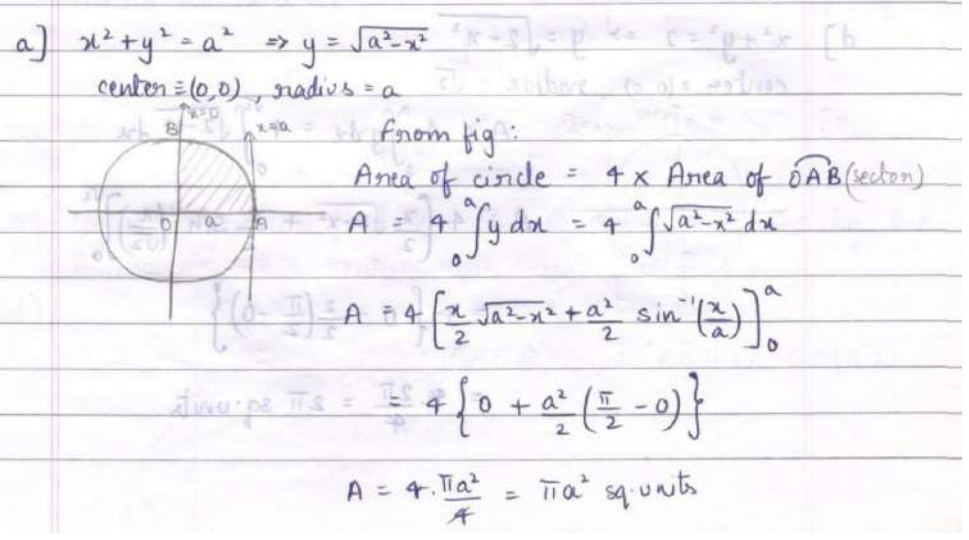 a] x² + y² = a² ⇒ y = √(a²-x²)
center ≡ (0,0), radius = a
x=0
B
x=a
O a A
from fig:
Area of circle = 4 x Area of OAB (sector)
A = 4 ₀∫ᵃ y dx = 4 ₀∫ᵃ √(a²-x²) dx
A = 4 [x/2 √(a²-x²) + a²/2 sin⁻¹(x/a)]₀ᵃ
= 4 {0 + a²/2 (π/2 - 0)}
A = 4 · πa²/4 = πa² sq. units